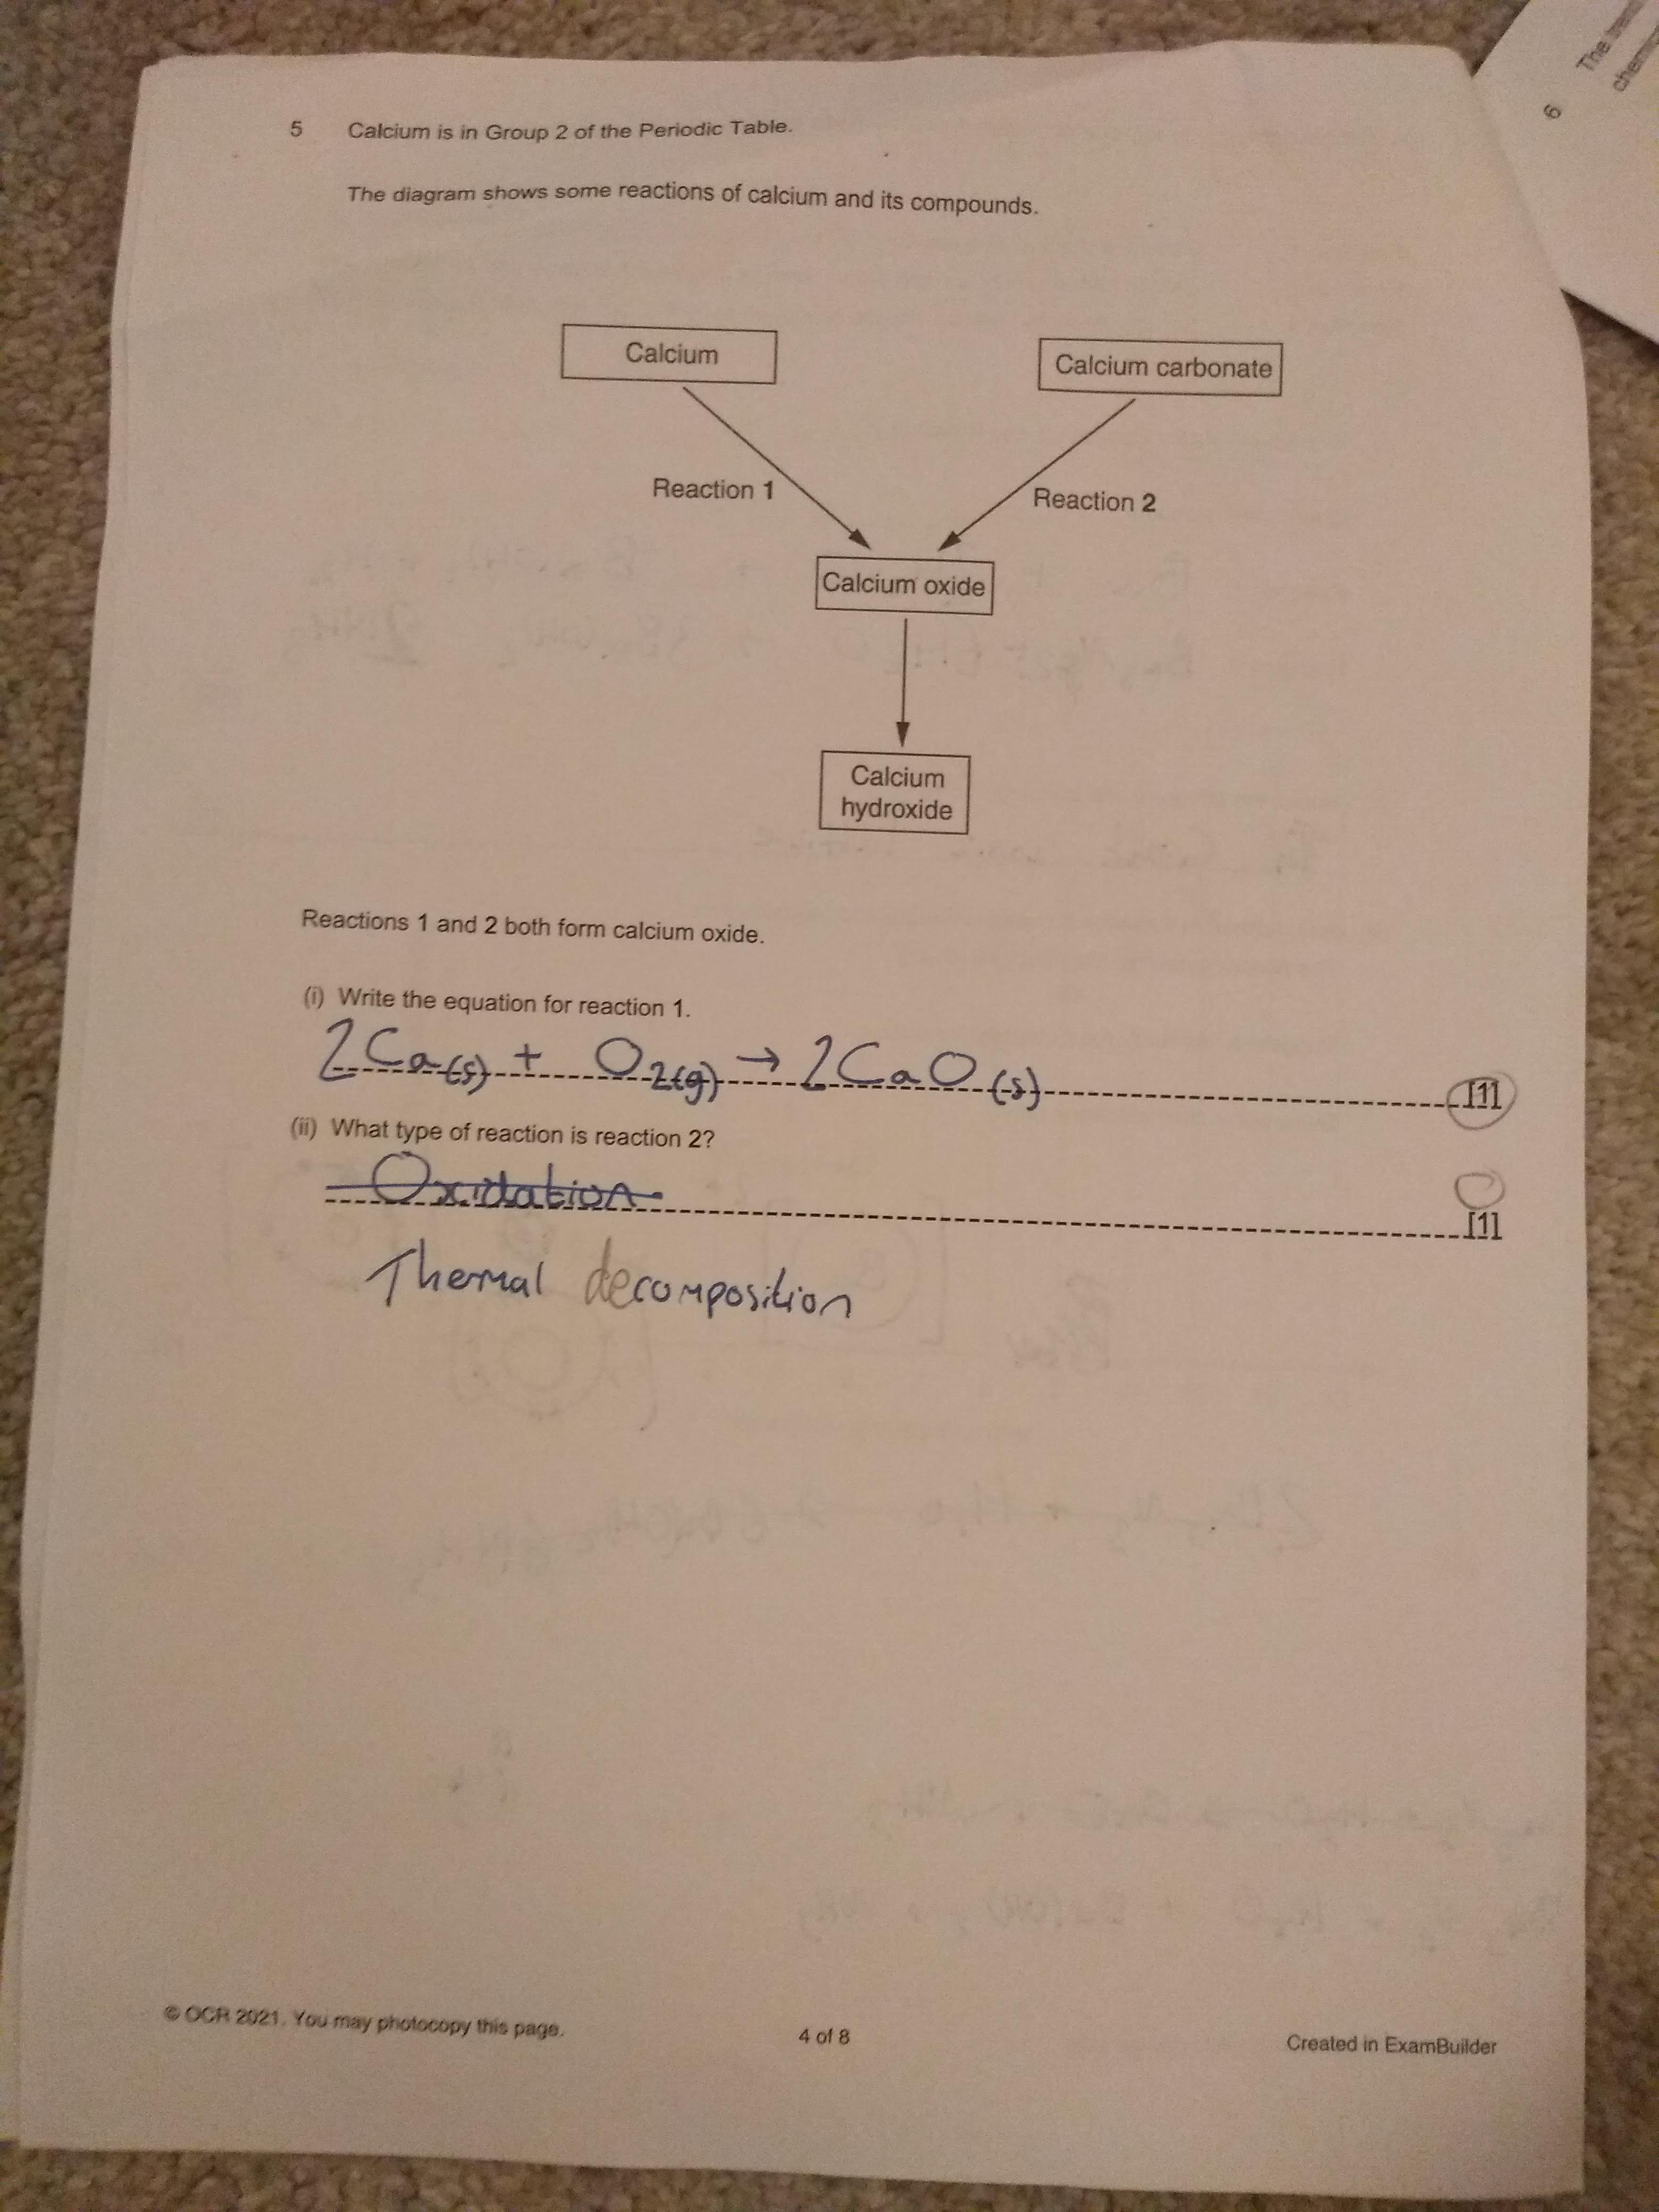 5 Calcium is in Group 2 of the Periodic Table.
The diagram shows some reactions of calcium and its compounds.
Calcium
Calcium carbonate
Reaction 1
Reaction 2
Calcium oxide
Calcium
hydroxide
Reactions 1 and 2 both form calcium oxide.
(i) Write the equation for reaction 1.
2Ca(s) + O2(g) → 2CaO(s) [1]
(ii) What type of reaction is reaction 2?
Oxidation
[1]
Thermal decomposition
© OCR 2021. You may photocopy this page.
4 of 8
Created in ExamBuilder
6
The